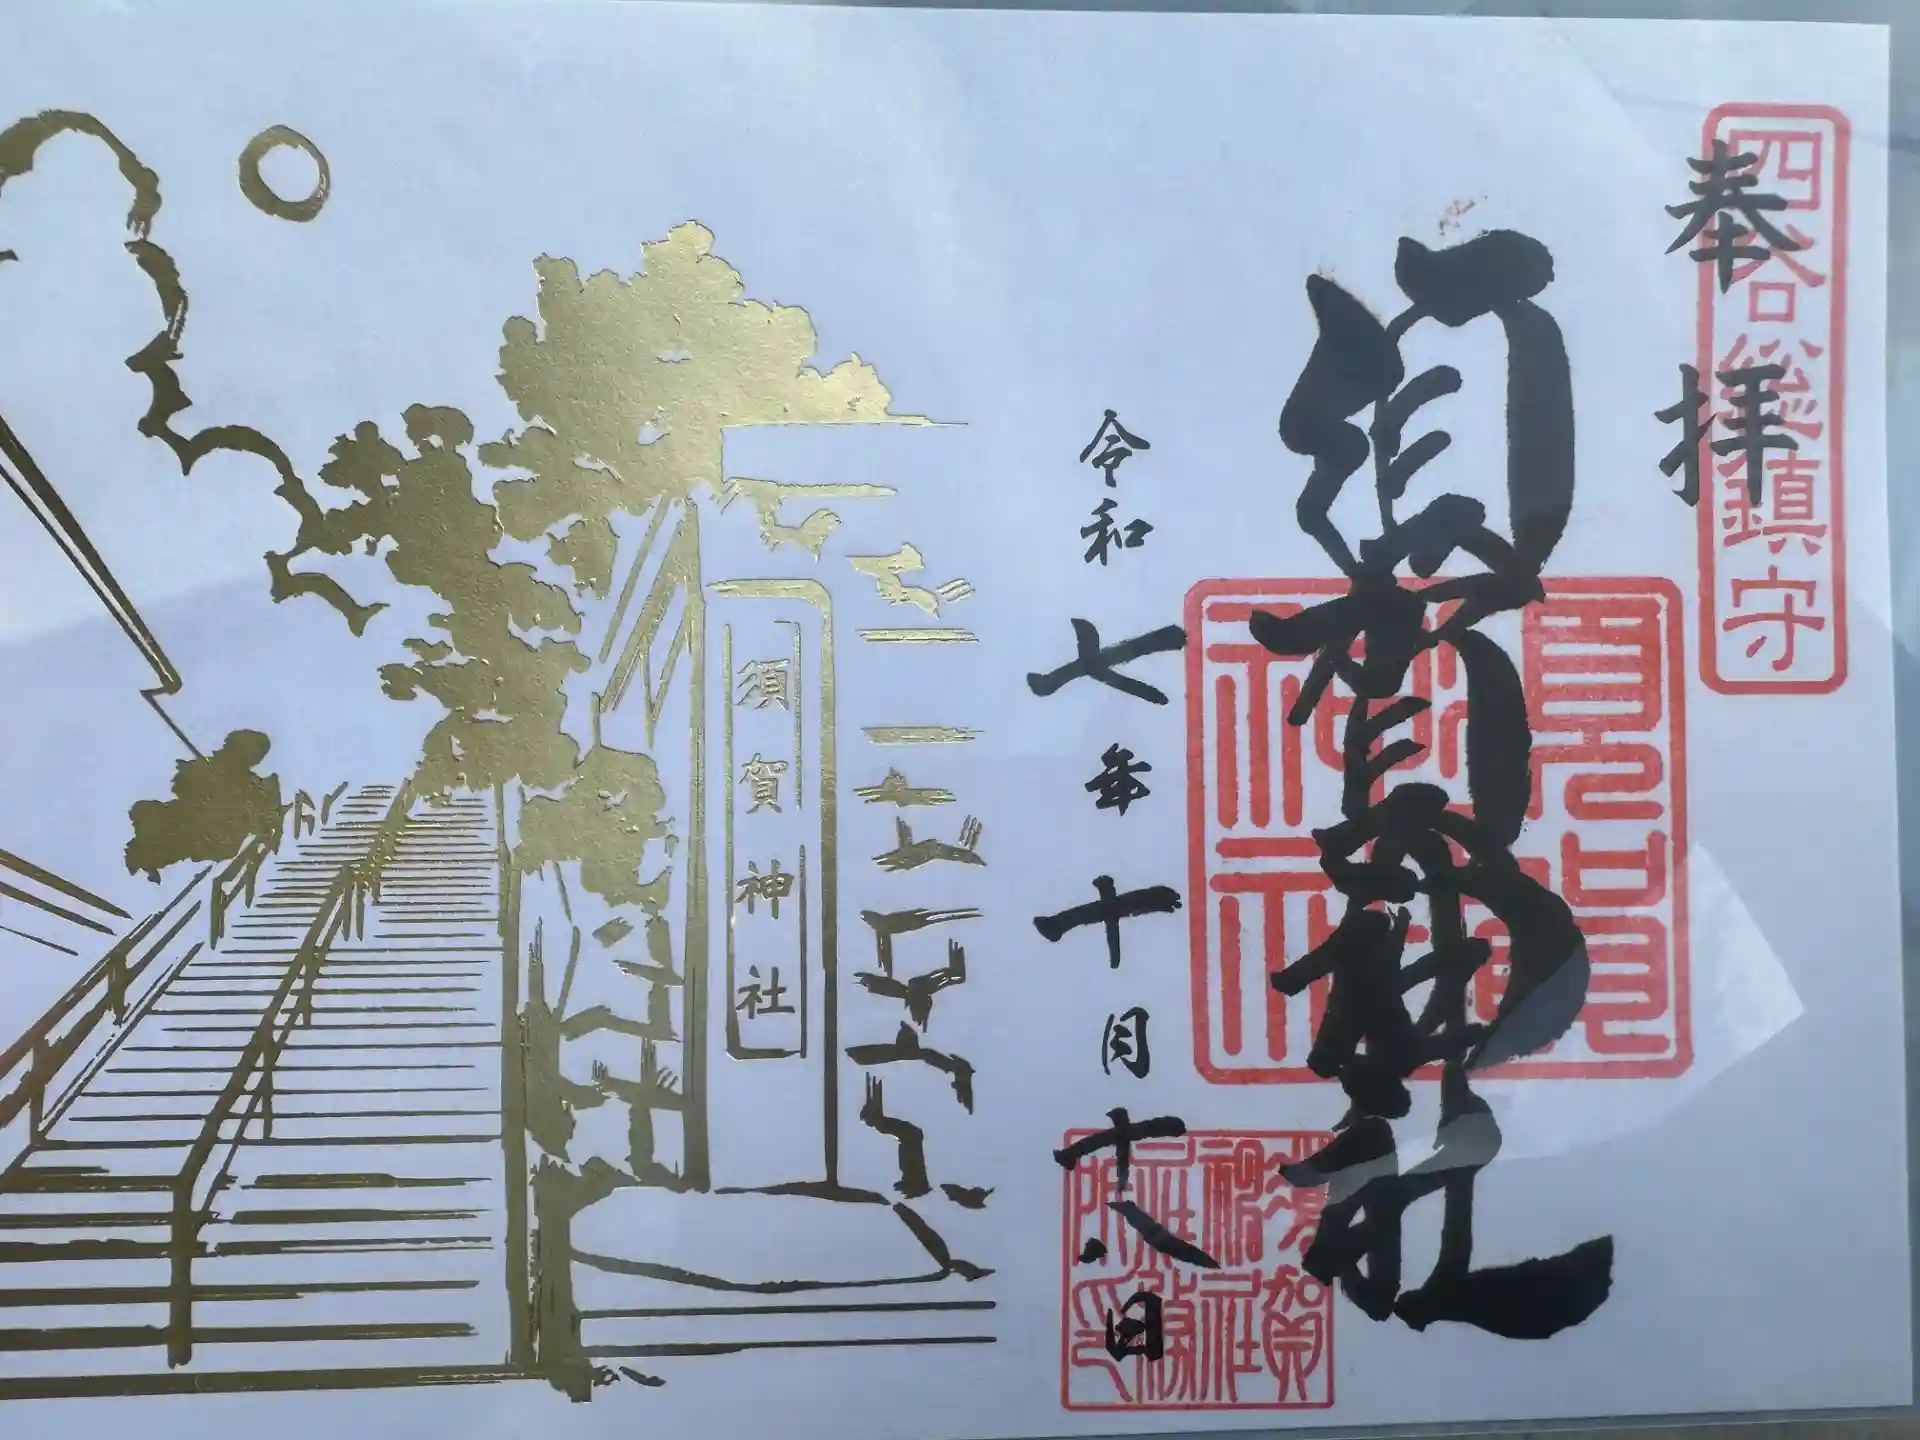 四谷総鎮守
奉拝
須賀神社
須賀神社
令和七年十月十八日
須賀神社